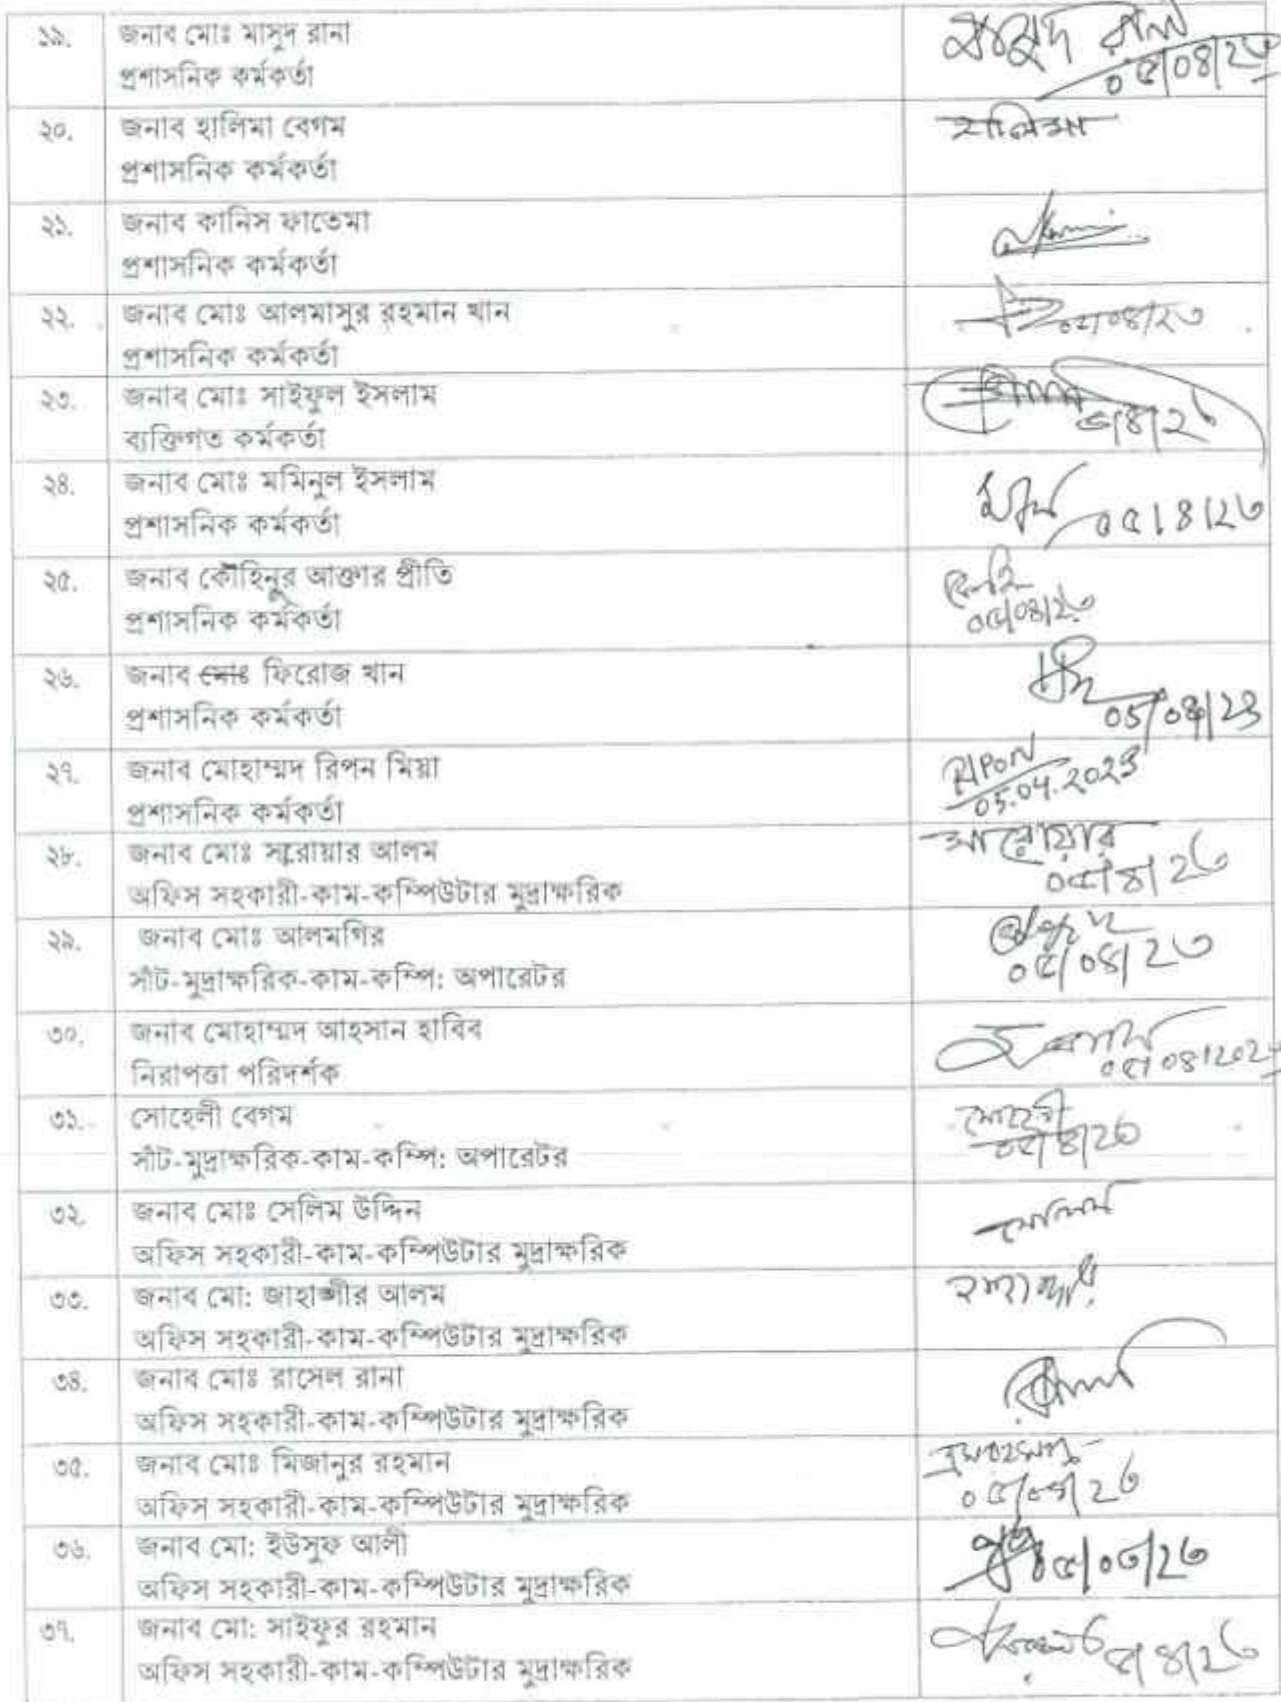 ১৯. জনাব মোঃ মাসুদ রানা
প্রশাসনিক কর্মকর্তা
মাসুদ রানা
০৫/০৪/২৩
২০. জনাব হালিমা বেগম
প্রশাসনিক কর্মকর্তা
হালিমা
২১. জনাব কানিস ফাতেমা
প্রশাসনিক কর্মকর্তা
২২. জনাব মোঃ আলমাসুর রহমান খান
প্রশাসনিক কর্মকর্তা
০৫/০৪/২৩
২৩. জনাব মোঃ সাইফুল ইসলাম
ব্যক্তিগত কর্মকর্তা
২৪. জনাব মোঃ মমিনুল ইসলাম
প্রশাসনিক কর্মকর্তা
০৫/৪/২৩
২৫. জনাব কৌহিনুর আক্তার প্রীতি
প্রশাসনিক কর্মকর্তা
০৫/০৪/২৩
২৬. জনাব মোঃ ফিরোজ খান
প্রশাসনিক কর্মকর্তা
05/04/23
২৭. জনাব মোহাম্মদ রিপন মিয়া
প্রশাসনিক কর্মকর্তা
RIPON
05.04.2023
২৮. জনাব মোঃ সরোয়ার আলম
অফিস সহকারী-কাম-কম্পিউটার মুদ্রাক্ষরিক
সারোয়ার
০৫/৪/২৩
২৯. জনাব মোঃ আলমগির
সাঁট-মুদ্রাক্ষরিক-কাম-কম্পি: অপারেটর
০৫/০৪/২৩
৩০. জনাব মোহাম্মদ আহসান হাবিব
নিরাপত্তা পরিদর্শক
৩১. সোহেলী বেগম
সাঁট-মুদ্রাক্ষরিক-কাম-কম্পি: অপারেটর
সোহেলী
০৫/৪/২৩
৩২. জনাব মোঃ সেলিম উদ্দিন
অফিস সহকারী-কাম-কম্পিউটার মুদ্রাক্ষরিক
সেলিম
৩৩. জনাব মো: জাহাঙ্গীর আলম
অফিস সহকারী-কাম-কম্পিউটার মুদ্রাক্ষরিক
৩৪. জনাব মোঃ রাসেল রানা
অফিস সহকারী-কাম-কম্পিউটার মুদ্রাক্ষরিক
৩৫. জনাব মোঃ মিজানুর রহমান
অফিস সহকারী-কাম-কম্পিউটার মুদ্রাক্ষরিক
০৫/০৪/২৩
৩৬. জনাব মো: ইউসুফ আলী
অফিস সহকারী-কাম-কম্পিউটার মুদ্রাক্ষরিক
৩৭. জনাব মো: সাইফুর রহমান
অফিস সহকারী-কাম-কম্পিউটার মুদ্রাক্ষরিক